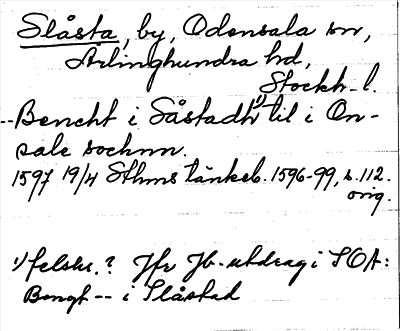 Slåsta, by, Odensala sn,
Ärlinghundra hd,
Stockh. l.
--Bencht i Såstadh 1) til i On-
sale sochnn.
1597 19/4 Sthms tänkeb. 1596-99, s. 112.
orig.
1) felskr.? Jfr Jb-utdrag i SOA:
Bengt -- i Slåstad